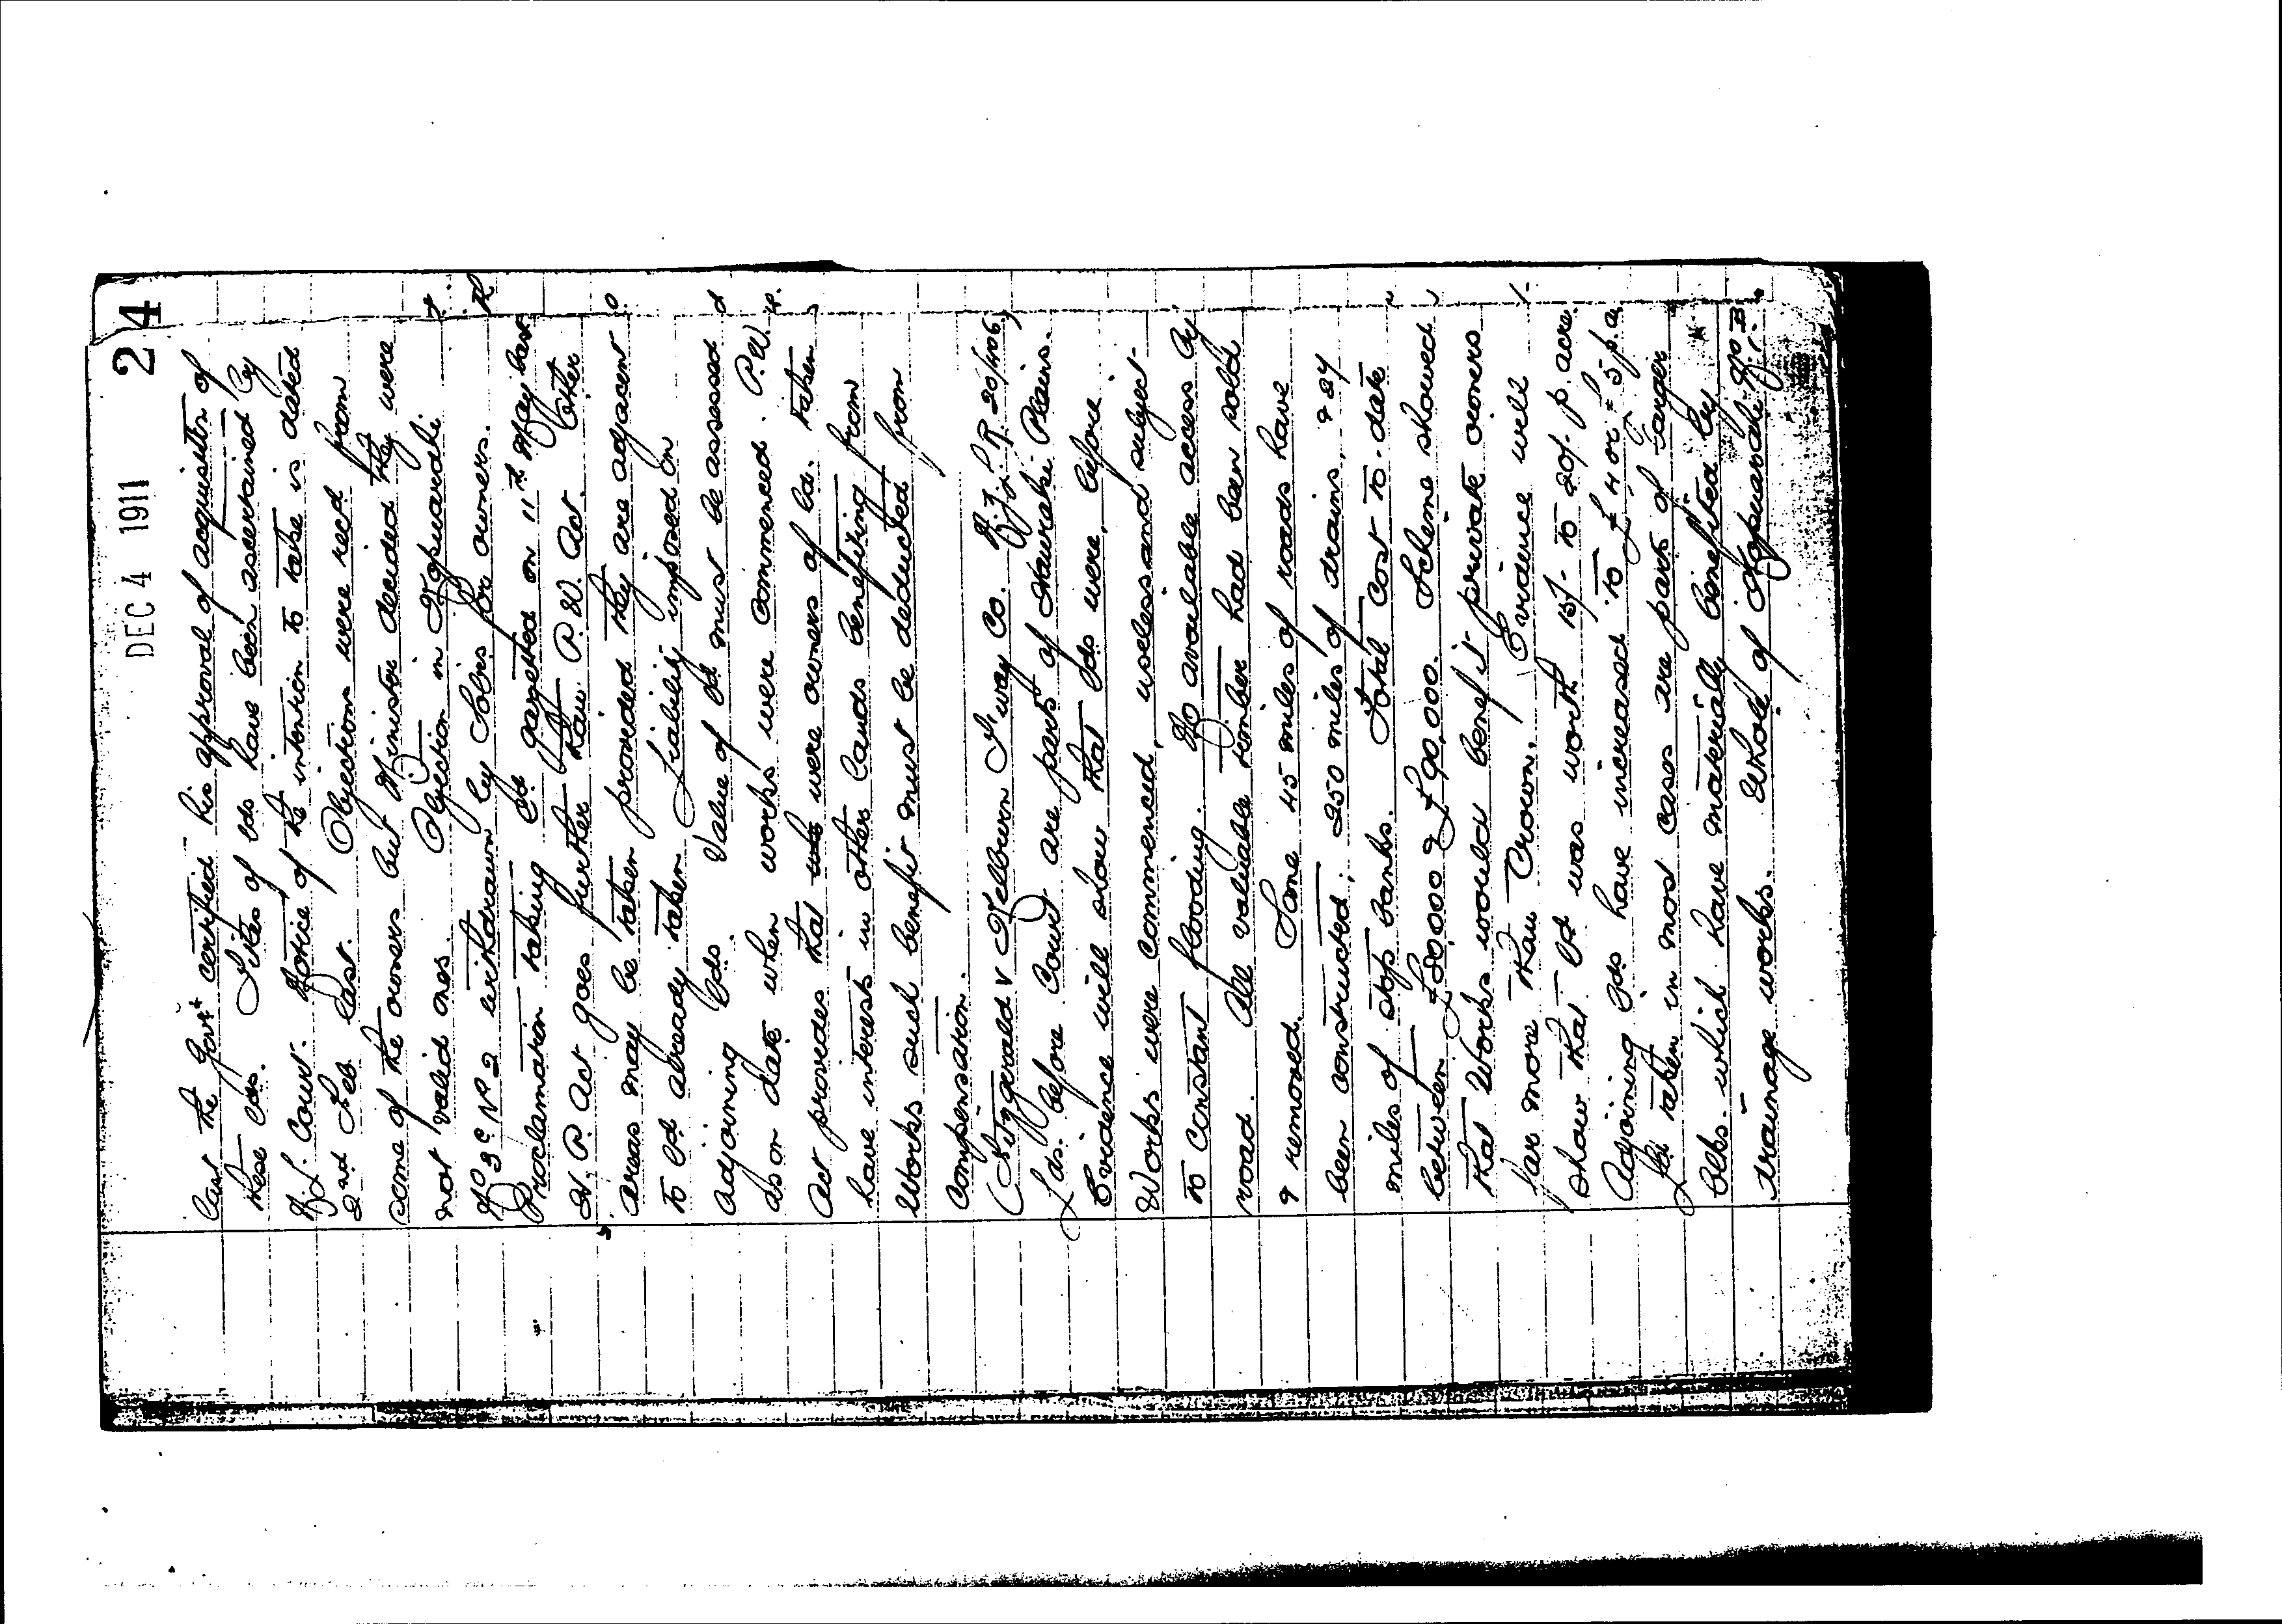 DEC 4 1911 24
last the Govr certified his approval of acquisitn of
these lds. Titles of lds have been ascertained by
N.L. Court. Notice of the intention to take is dated
2nd Feb last. Objections were recd from
some of the owners but Minister decided they were
not valid ones. Objection in Ngapuarahi
No 3c No 2 withdrawn by Solrs for owners.
Proclamation taking ld gazetted on 11th May last
H.P. Act goes further than P.W. Act. Other
areas may be taken provided they are adjacent
to ld already taken Liability imposed on
adjoining lds. Value of ld must be assessed
as on date when works were commenced. P.W.
Act provides that were owners of ld. taken
have interests in other lands benefiting from
works such benefit must be deducted from
Compensation.
(Fitzgerald v Kelburn T'way Co. N.Z.L.R. 20/406)
Lds. before Court are parts of Hauraki Plains.
Evidence will show that lds were, before
Works were commenced, useless and subject
to constant flooding. No available access by
road. All valuable timber had been sold
& removed. Some 45 miles of roads have
been constructed; 250 miles of drains, & 84
miles of stop banks. Total cost to-date
between £80,000 & £90,000. Scheme showed
that works would benefit private owners
far more than Crown. Evidence will
show that ld was worth 15/- to 20/- p. acre.
Adjoining lds have increased to £4 or £5 p.a.
Lds taken in most cases are parts of larger
blks. which have materially benefited by
drainage works. Whole of No B